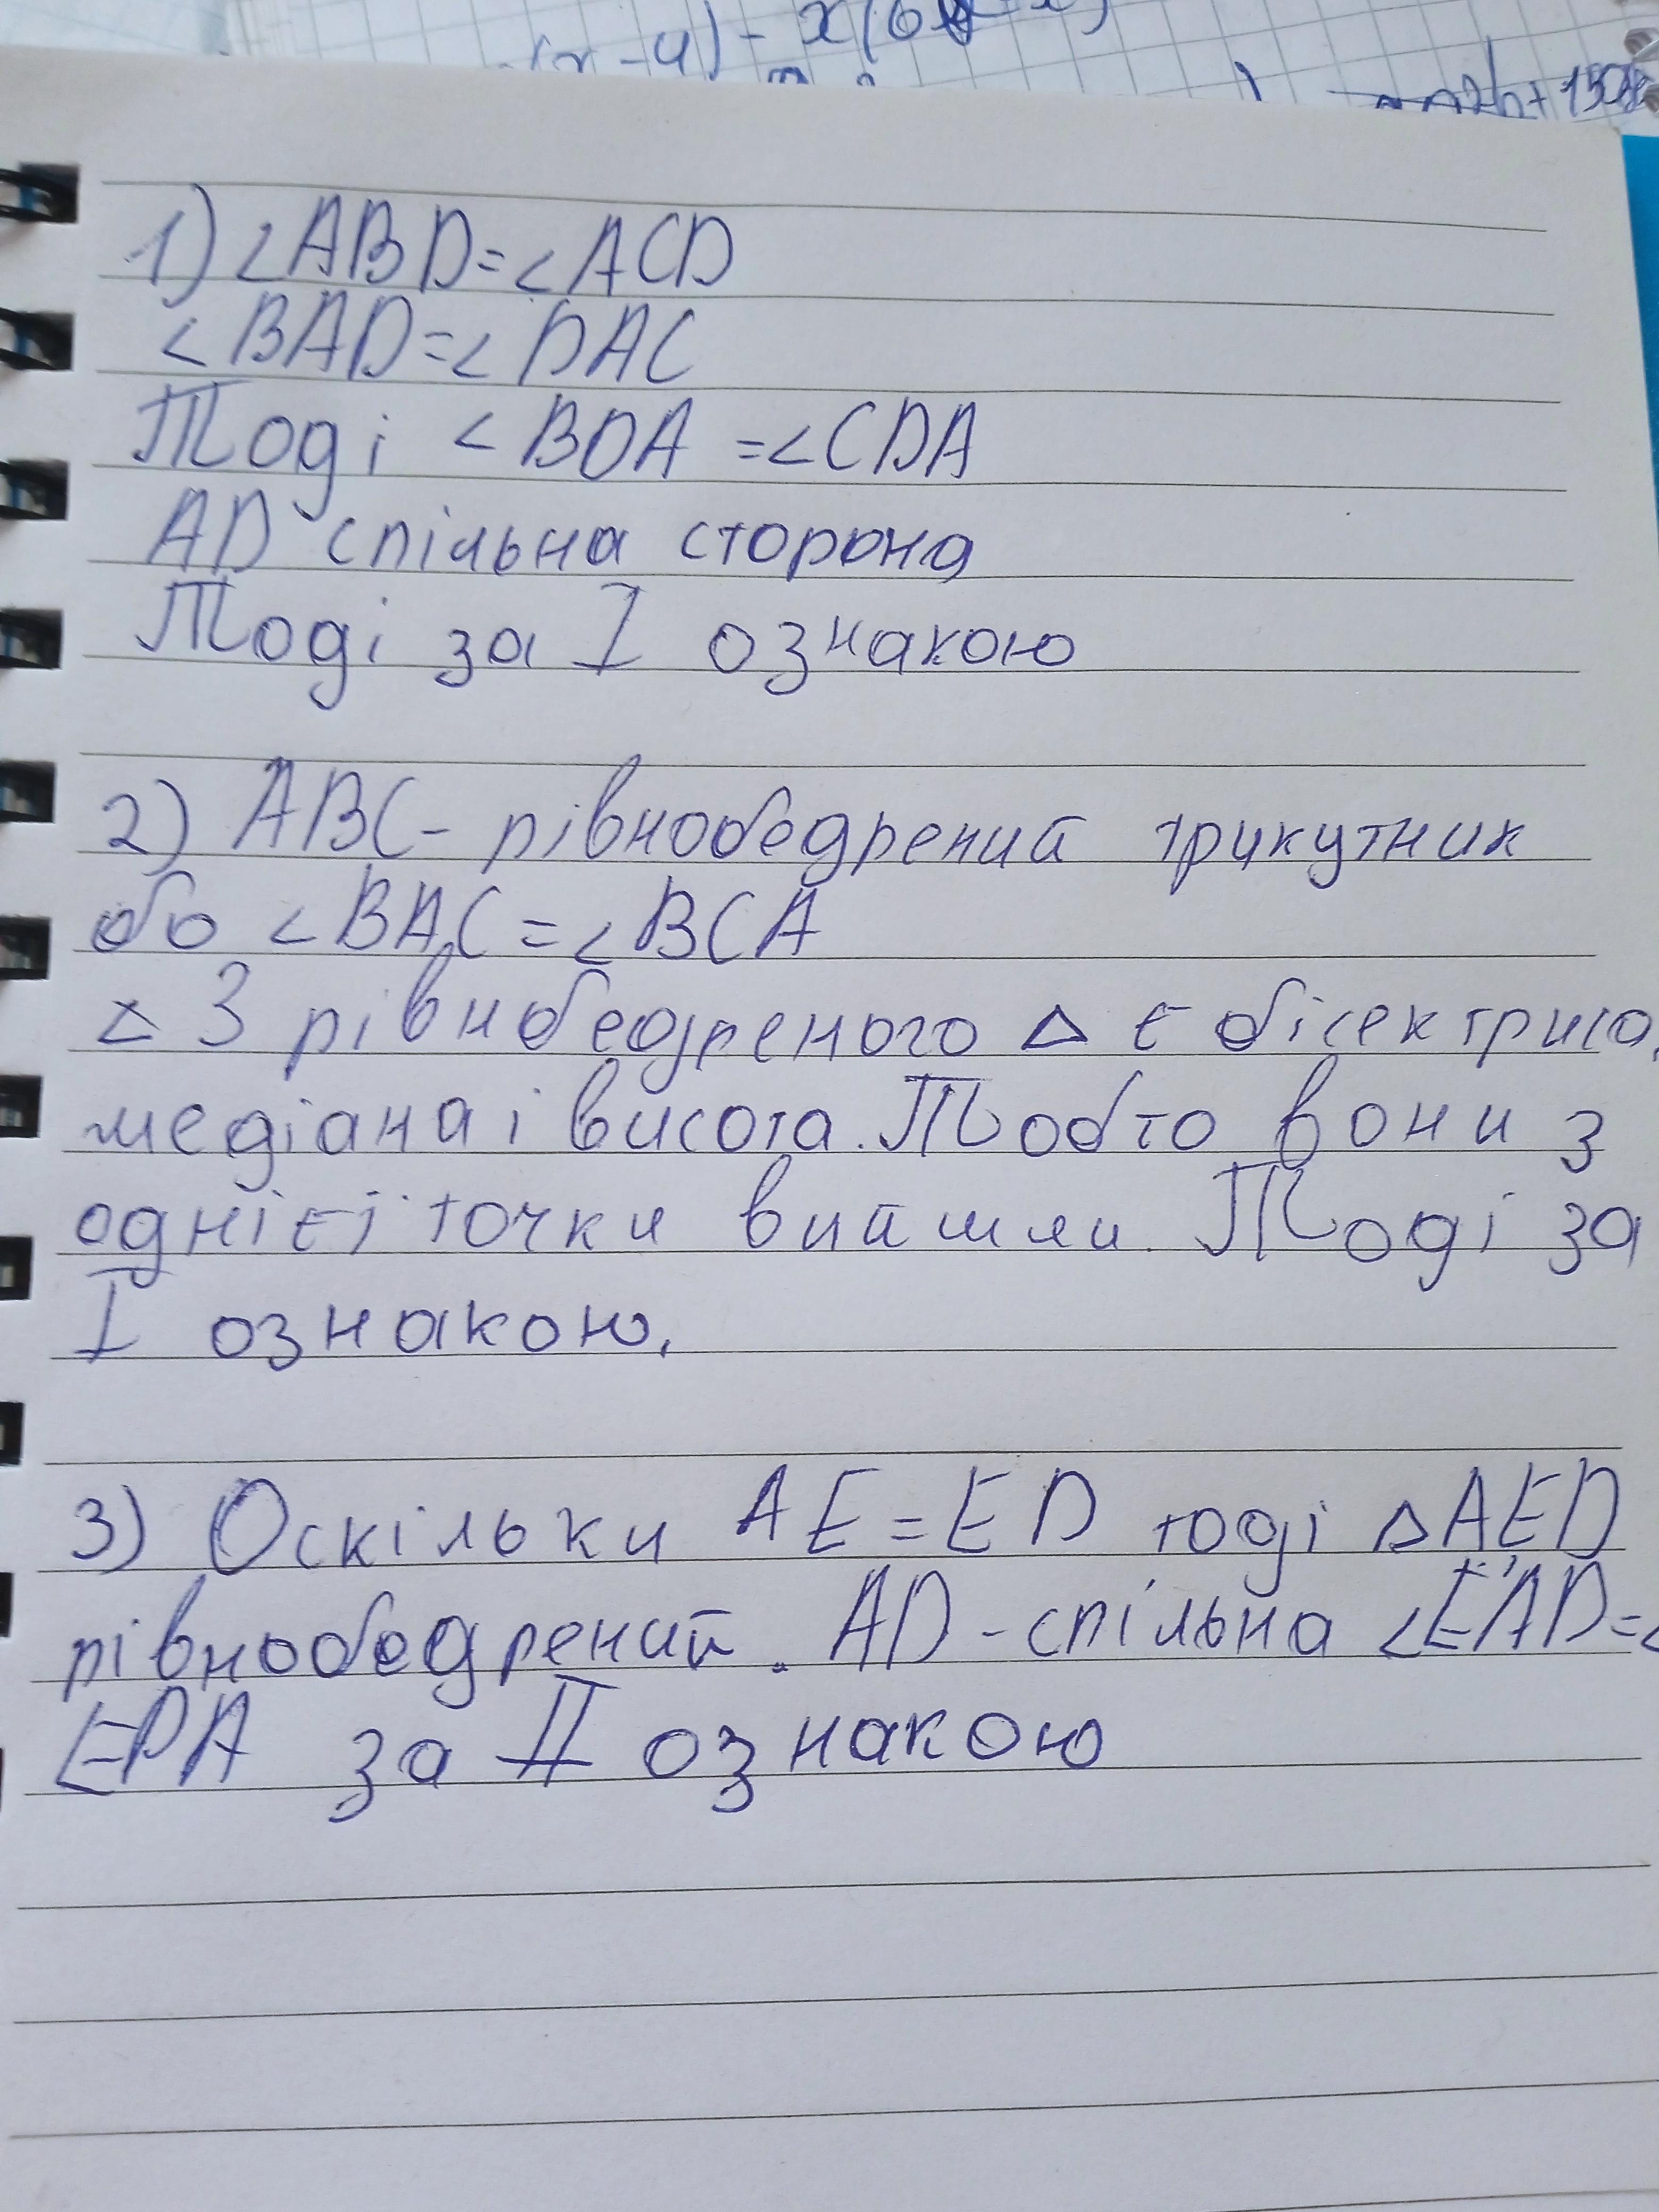 (x-4) - x(6
1) <ABD=<ACD
<BAD=<DAC
Тоді <BDA =<CDA
AD спільна сторона
Тоді за I ознакою
2) ABC- рівнобедрений трикутник
бо <BAC=<BCA
З рівнобедреного △ є бісектриса,
медіана і висота. Тобто вони з
однієї точки вийшли. Тоді за
I ознакою.
3) Оскільки AE=ED тоді △AED
рівнобедрений. AD-спільна <EAD=<
EDA за II ознакою